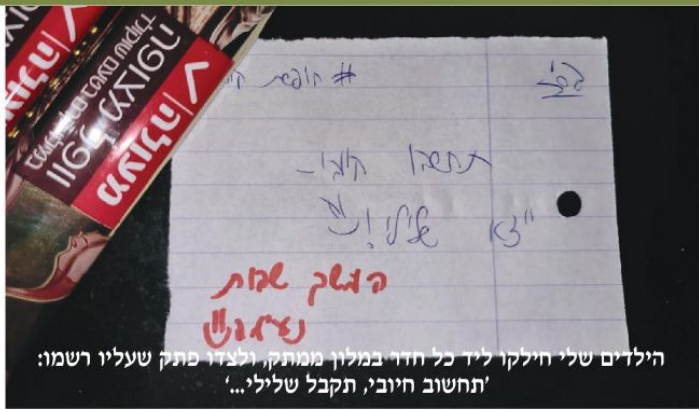 מעולה
וופל מצופה
בטעם שוקולד
בס"ד
# חופשת
תחשבו חיובי-
ייצא שלילי!
המשך שהות
נעימה
הילדים שלי חילקו ליד כל חדר במלון ממתק, ולצדו פתק שעליו רשמו:
'תחשוב חיובי, תקבל שלילי...'